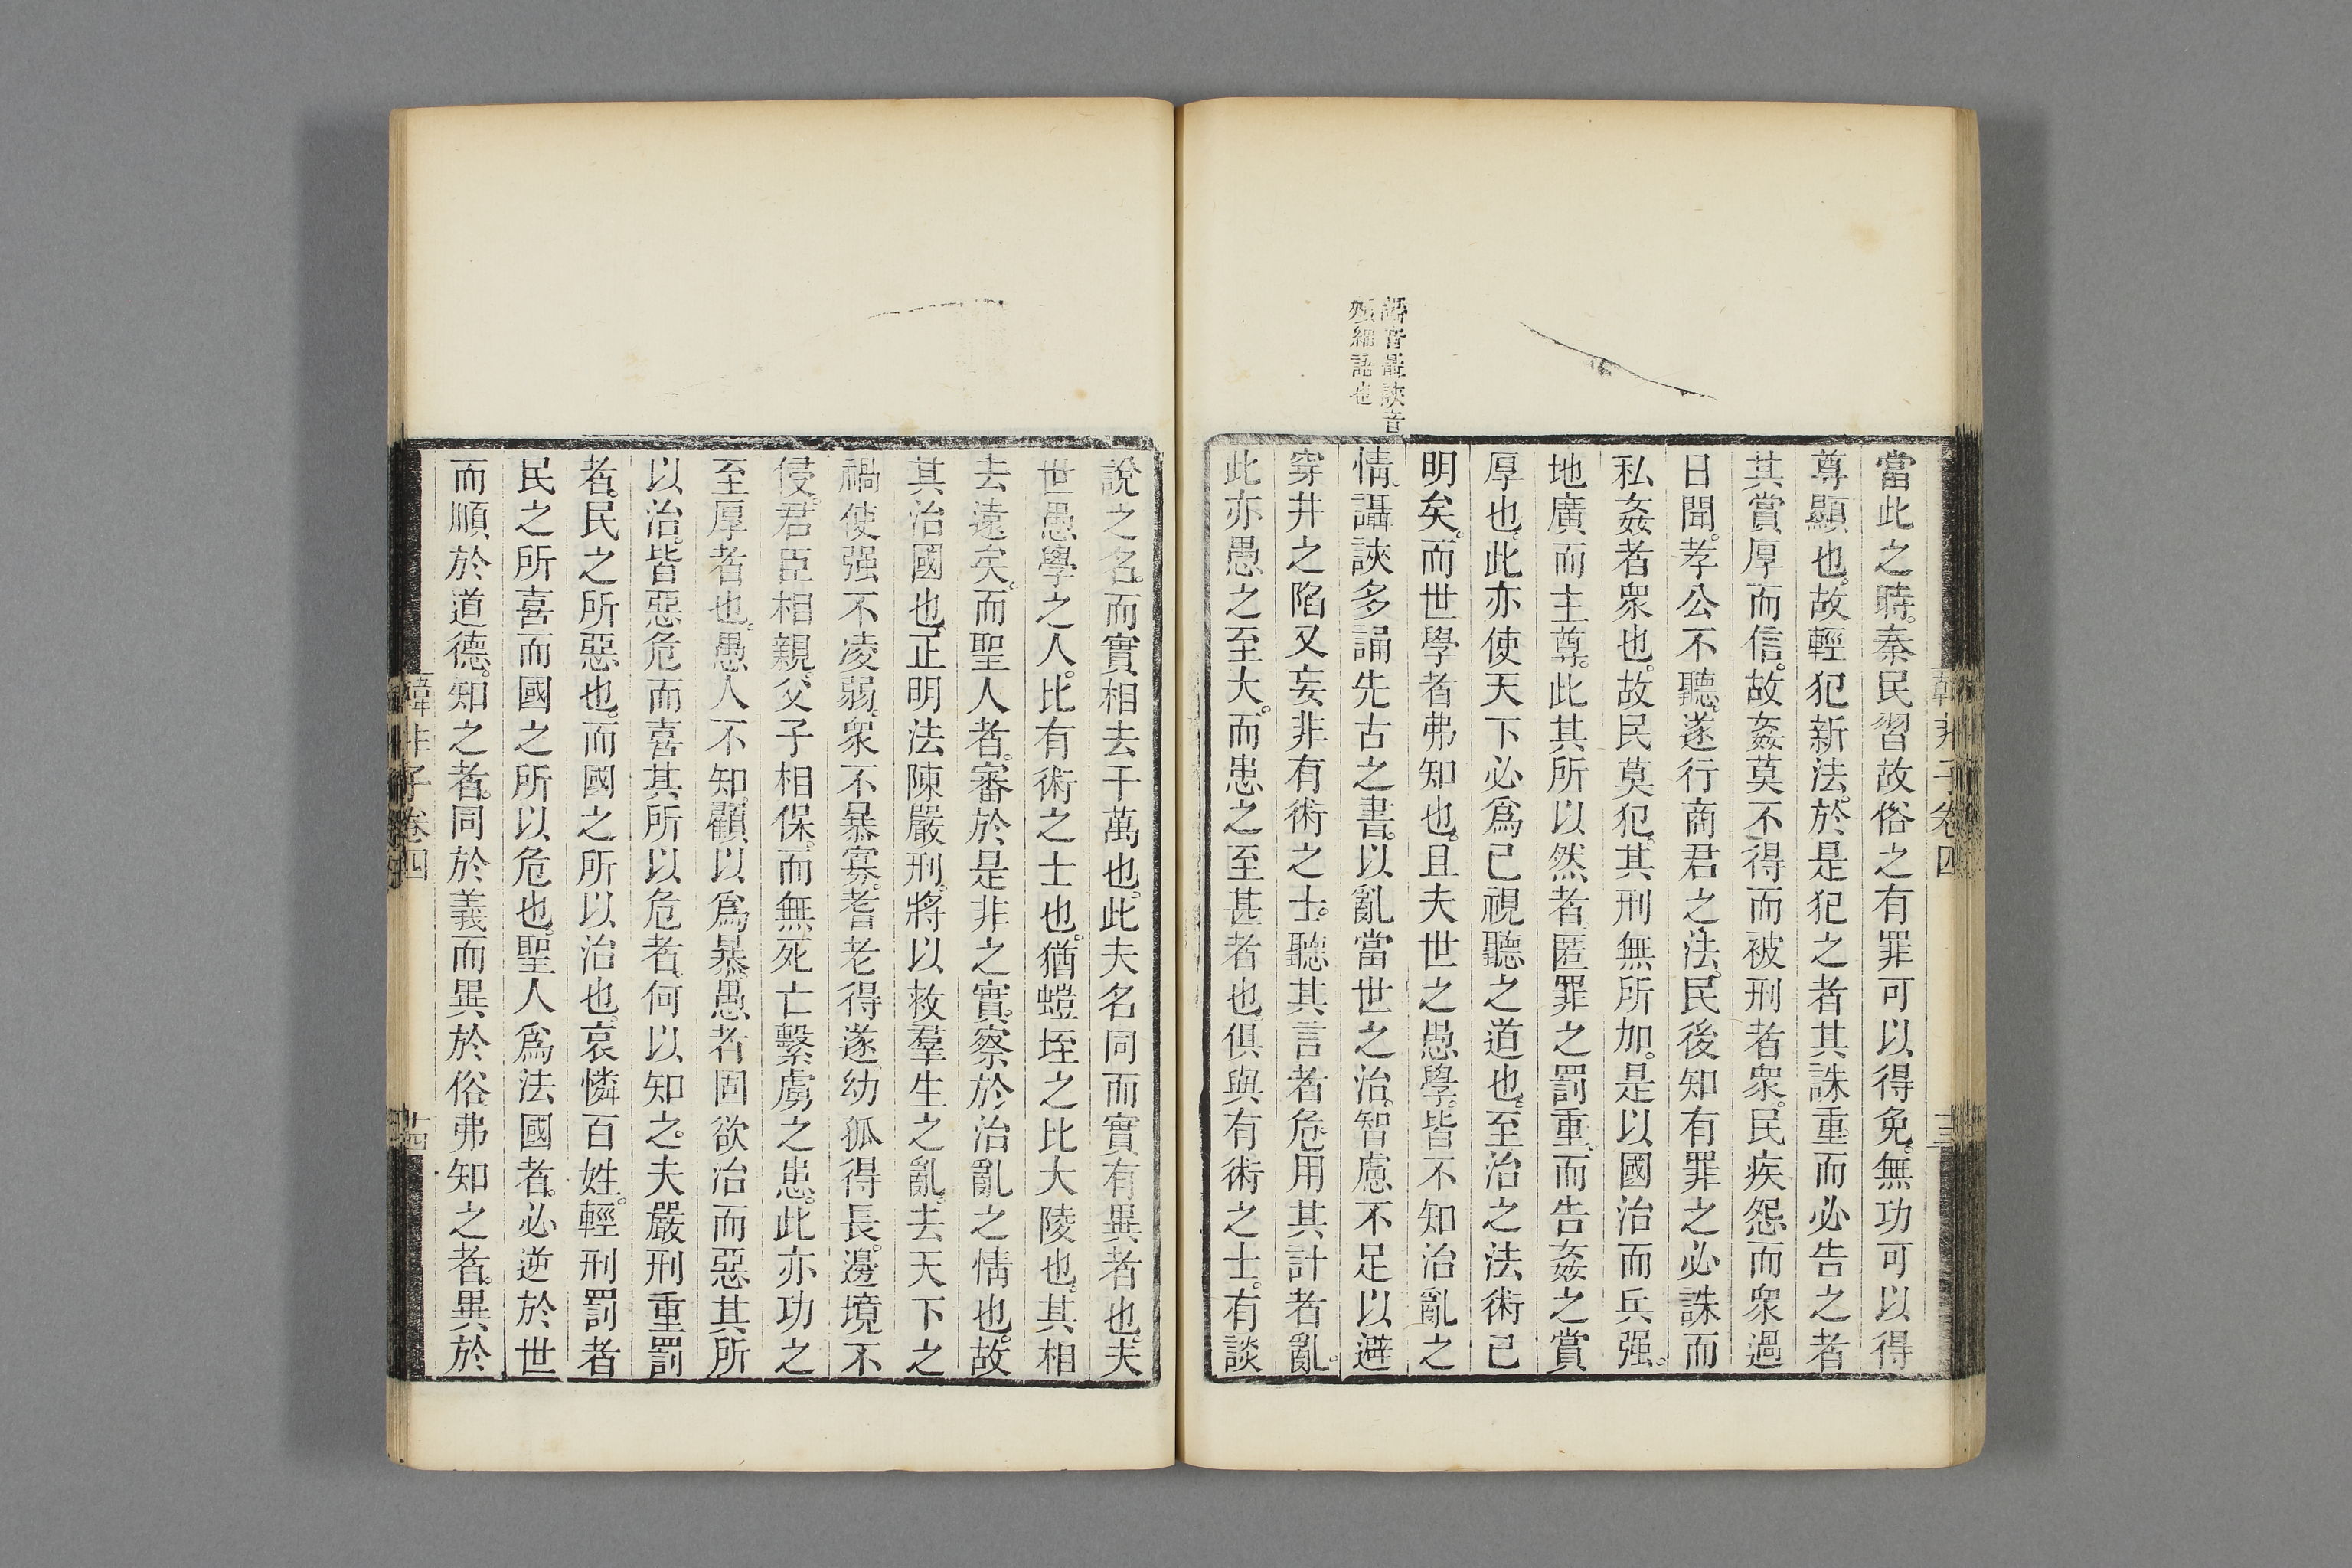 韓非子卷四
十三
當此之時。秦民習故俗之有罪可以得免。無功可以得
尊顯也。故輕犯新法。於是犯之者其誅重。而必告之者
其賞厚而信。故姦莫不得而被刑者衆。民疾怨而衆過
日聞。孝公不聽。遂行商君之法。民後知有罪之必誅而
私姦者衆也。故民莫犯。其刑無所加。是以國治而兵强。
地廣而主尊。此其所以然者。匿罪之罰重。而告姦之賞
厚也。此亦使天下必爲己視聽之道也。至治之法術已
明矣。而世學者弗知也。且夫世之愚學。皆不知治亂之
情。讘䛟多誦先古之書。以亂當世之治。智慮不足以避
穽井之陷又妄非有術之士。聽其言者危。用其計者亂。
此亦愚之至大。而患之至甚者也俱與有術之士。有談
讘音聶䛟音
頰細語也
說之名。而實相去千萬也。此夫名同而實有異者也。夫
世愚學之人。比有術之士也。猶螘垤之比大陵也。其相
去遠矣。而聖人者。審於是非之實。察於治亂之情也。故
其治國也。正明法陳嚴刑。將以救羣生之亂。去天下之
禍使强不凌弱。衆不暴寡。耆老得遂幼孤得長。邊境不
侵。君臣相親。父子相保。而無死亡繫虜之患。此亦功之
至厚者也。愚人不知。顧以爲暴。愚者固欲治而惡其所
以治。皆惡危而喜其所以危者。何以知之。夫嚴刑重罰
者。民之所惡也。而國之所以治也。哀憐百姓。輕刑罰者
民之所喜而國之所以危也。聖人爲法國者。必逆於世
而順於道德。知之者。同於義而異於俗弗知之者。異於
韓非子卷四
十四